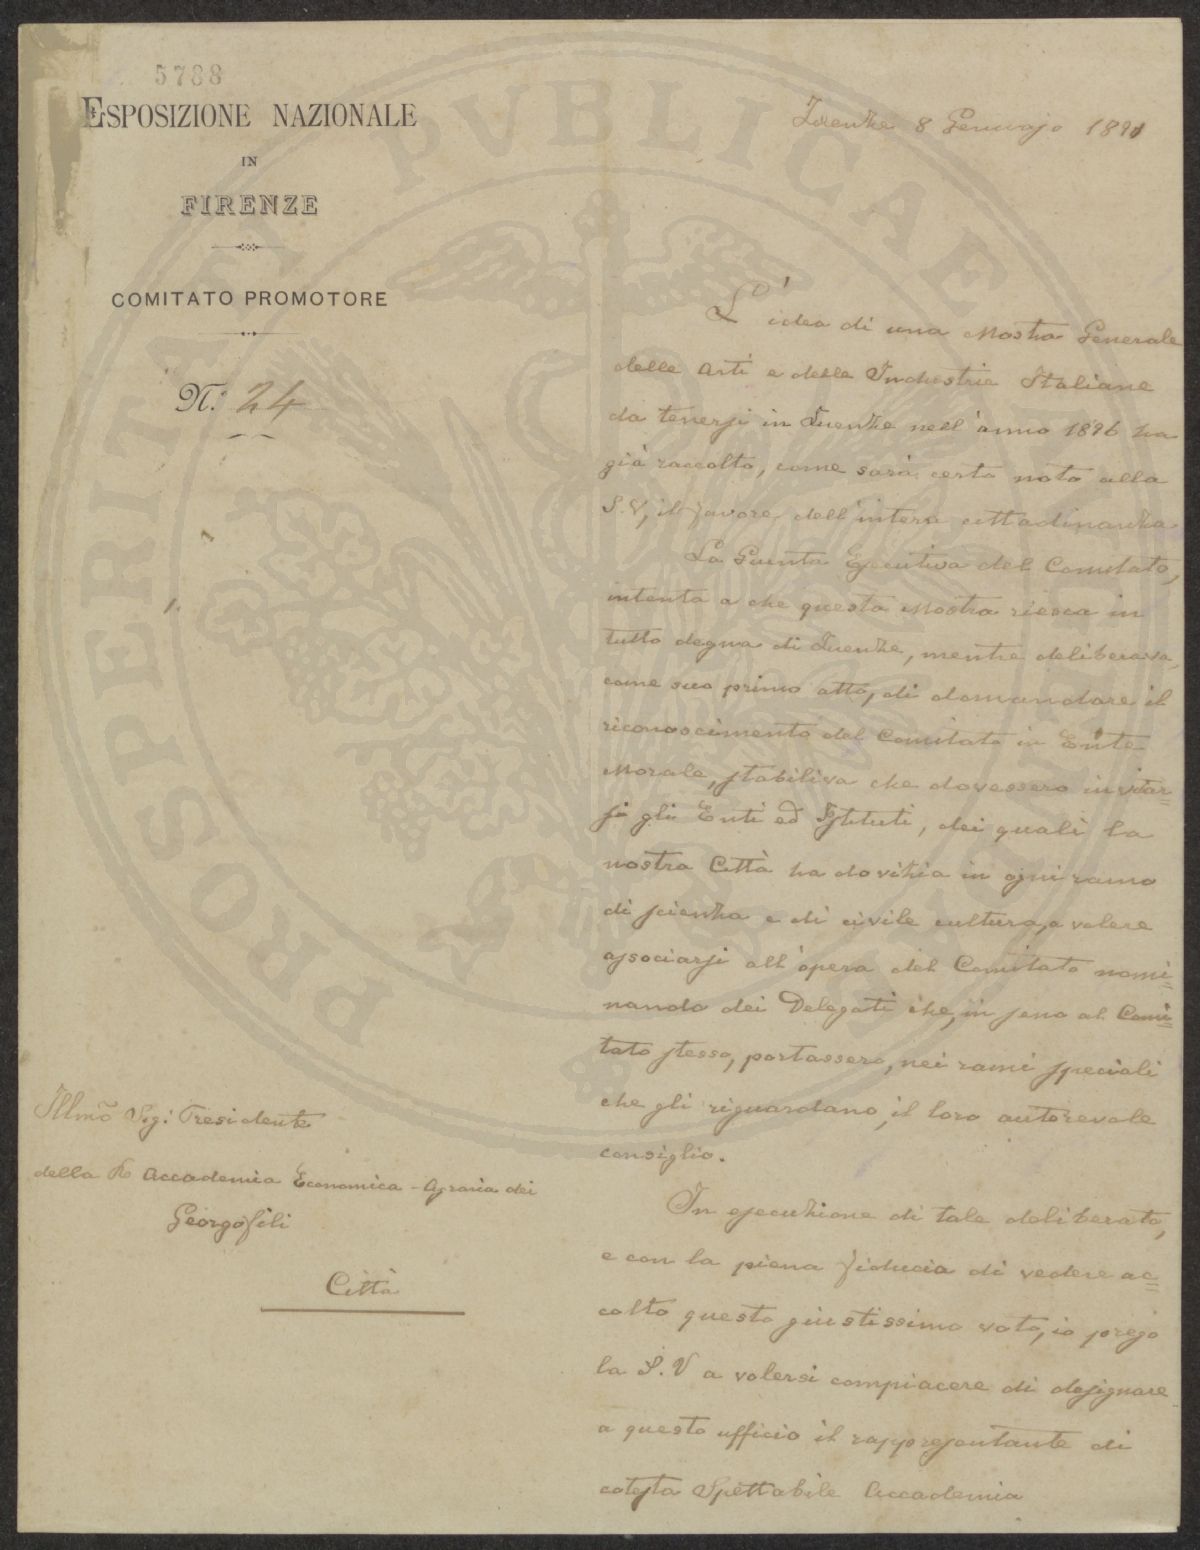 5788
ESPOSIZIONE NAZIONALE
IN
FIRENZE
COMITATO PROMOTORE
N. 24
Firenze 8 Gennajo 1891
L'idea di una Mostra Generale
delle Arti e delle Industrie Italiane
da tenersi in Firenze nell'anno 1896 ha
già raccolto, come sarà certo noto alla
S.V, il favore dell'intera cittadinanza
La Giunta Esecutiva del Comitato,
intenta a che questa Mostra riesca in
tutto degna di Firenze, mentre deliberava,
come suo primo atto, di domandare il
riconoscimento del Comitato in Ente
Morale, stabiliva che dovessero invitar=
si gli Enti ed Istituti, dei quali la
nostra Città ha dovizia in ogni ramo
di scienza e di civile cultura, a volere
associarsi all'opera del Comitato nomi=
nando dei Delegati che, in seno al Comi=
tato stesso, portassero, nei rami speciali
che gli riguardano, il loro autorevole
consiglio.
In esecuzione di tale deliberato,
e con la piena fiducia di vedere ac=
colto questo giustissimo voto, io prego
la S.V a volersi compiacere di designare
a questo ufficio il rappresentante di
cotesta Spettabile Accademia
Illmo Sig: Presidente
della R Accademia Economica-Agraria dei
Georgofili
Città
PROSPERITATI PVBLICAE